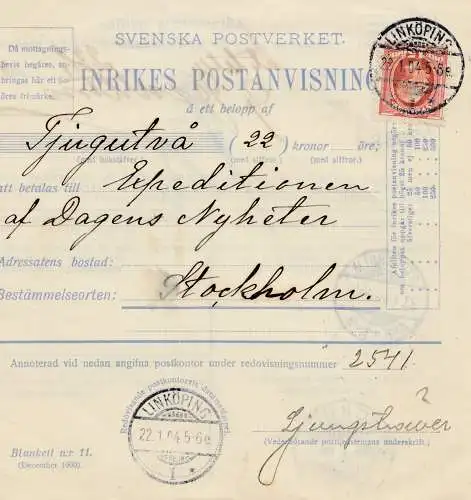 SVENSKA POSTVERKET.
LINKÖPING
22.1.04 5-6 e.
Då mottagnings-
bevis begäres, an-
bringas här ett
frimärke.
INRIKES POSTANVISNING
å ett belopp af
Tjugutvå (22) kronor öre;
(med bokstäfver) (med siffror) (med siffror)
att betalas till Expeditionen
af Dagens Nyheter
Adressatens bostad:
Bestämmelseorten: Stockholm.
Annoterad vid nedan angifna postkontor under redovisningsnummer 2541
Redovisande postkontorets datumstämpel.
LINKÖPING
22.1.04 5-6 e.
1
Ljungstrower ?
(Vederbörande posttjänstemans underskrift.)
Blankett n:r 11.
(December 1900).